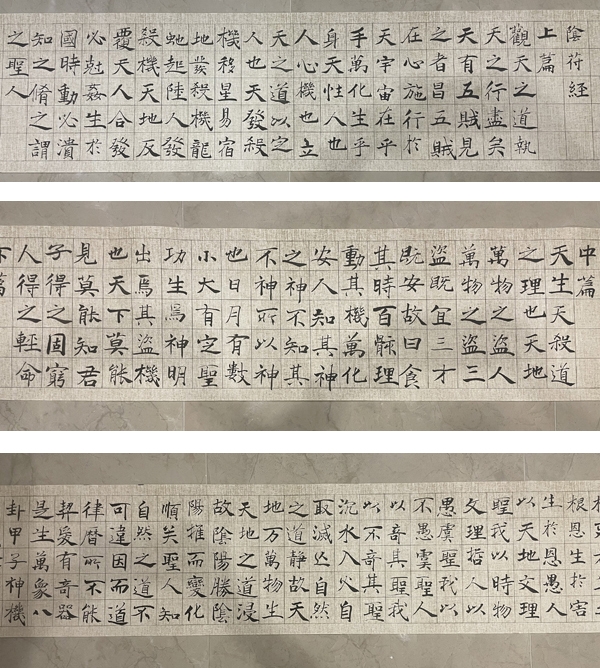 陰符經
上篇
觀天之道執
天之行盡矣
天有五賊見
之者昌五賊
在心施行於
天宇宙在乎
手萬化生乎
身天性人也
人心機也立
天之道以定
人也天發殺
機移星易宿
地發殺機龍
虵起陸人發
殺機天地反
覆天人合發
必尅姦生於
國時動必潰
知之脩之謂
之聖人
中篇
天生天殺道
之理也天地
萬物之盜人
萬物之盜三
盜既宜三才
既安故曰食
其時百骸理
動其機萬化
安人知其神
之神不知其
不神所以神
也日月有數
小大有定聖
功生焉神明
出焉其盜機
也天下莫能
見莫能知君
子得之固窮
人得之輕命
下篇
根恩生於害
生於恩愚人
以天地文理
聖我以時物
文理哲人以
愚虞聖我以
不愚虞聖人
以奇其聖我
以不奇其聖
沉水入火自
取滅亡自然
之道靜故天
地万萬物生
天地之道浸
故陰陽勝陰
陽推而變化
順矣聖人知
自然之道不
可違因而道
律曆所不能
契爰有奇器
是生萬象八
卦甲子神機